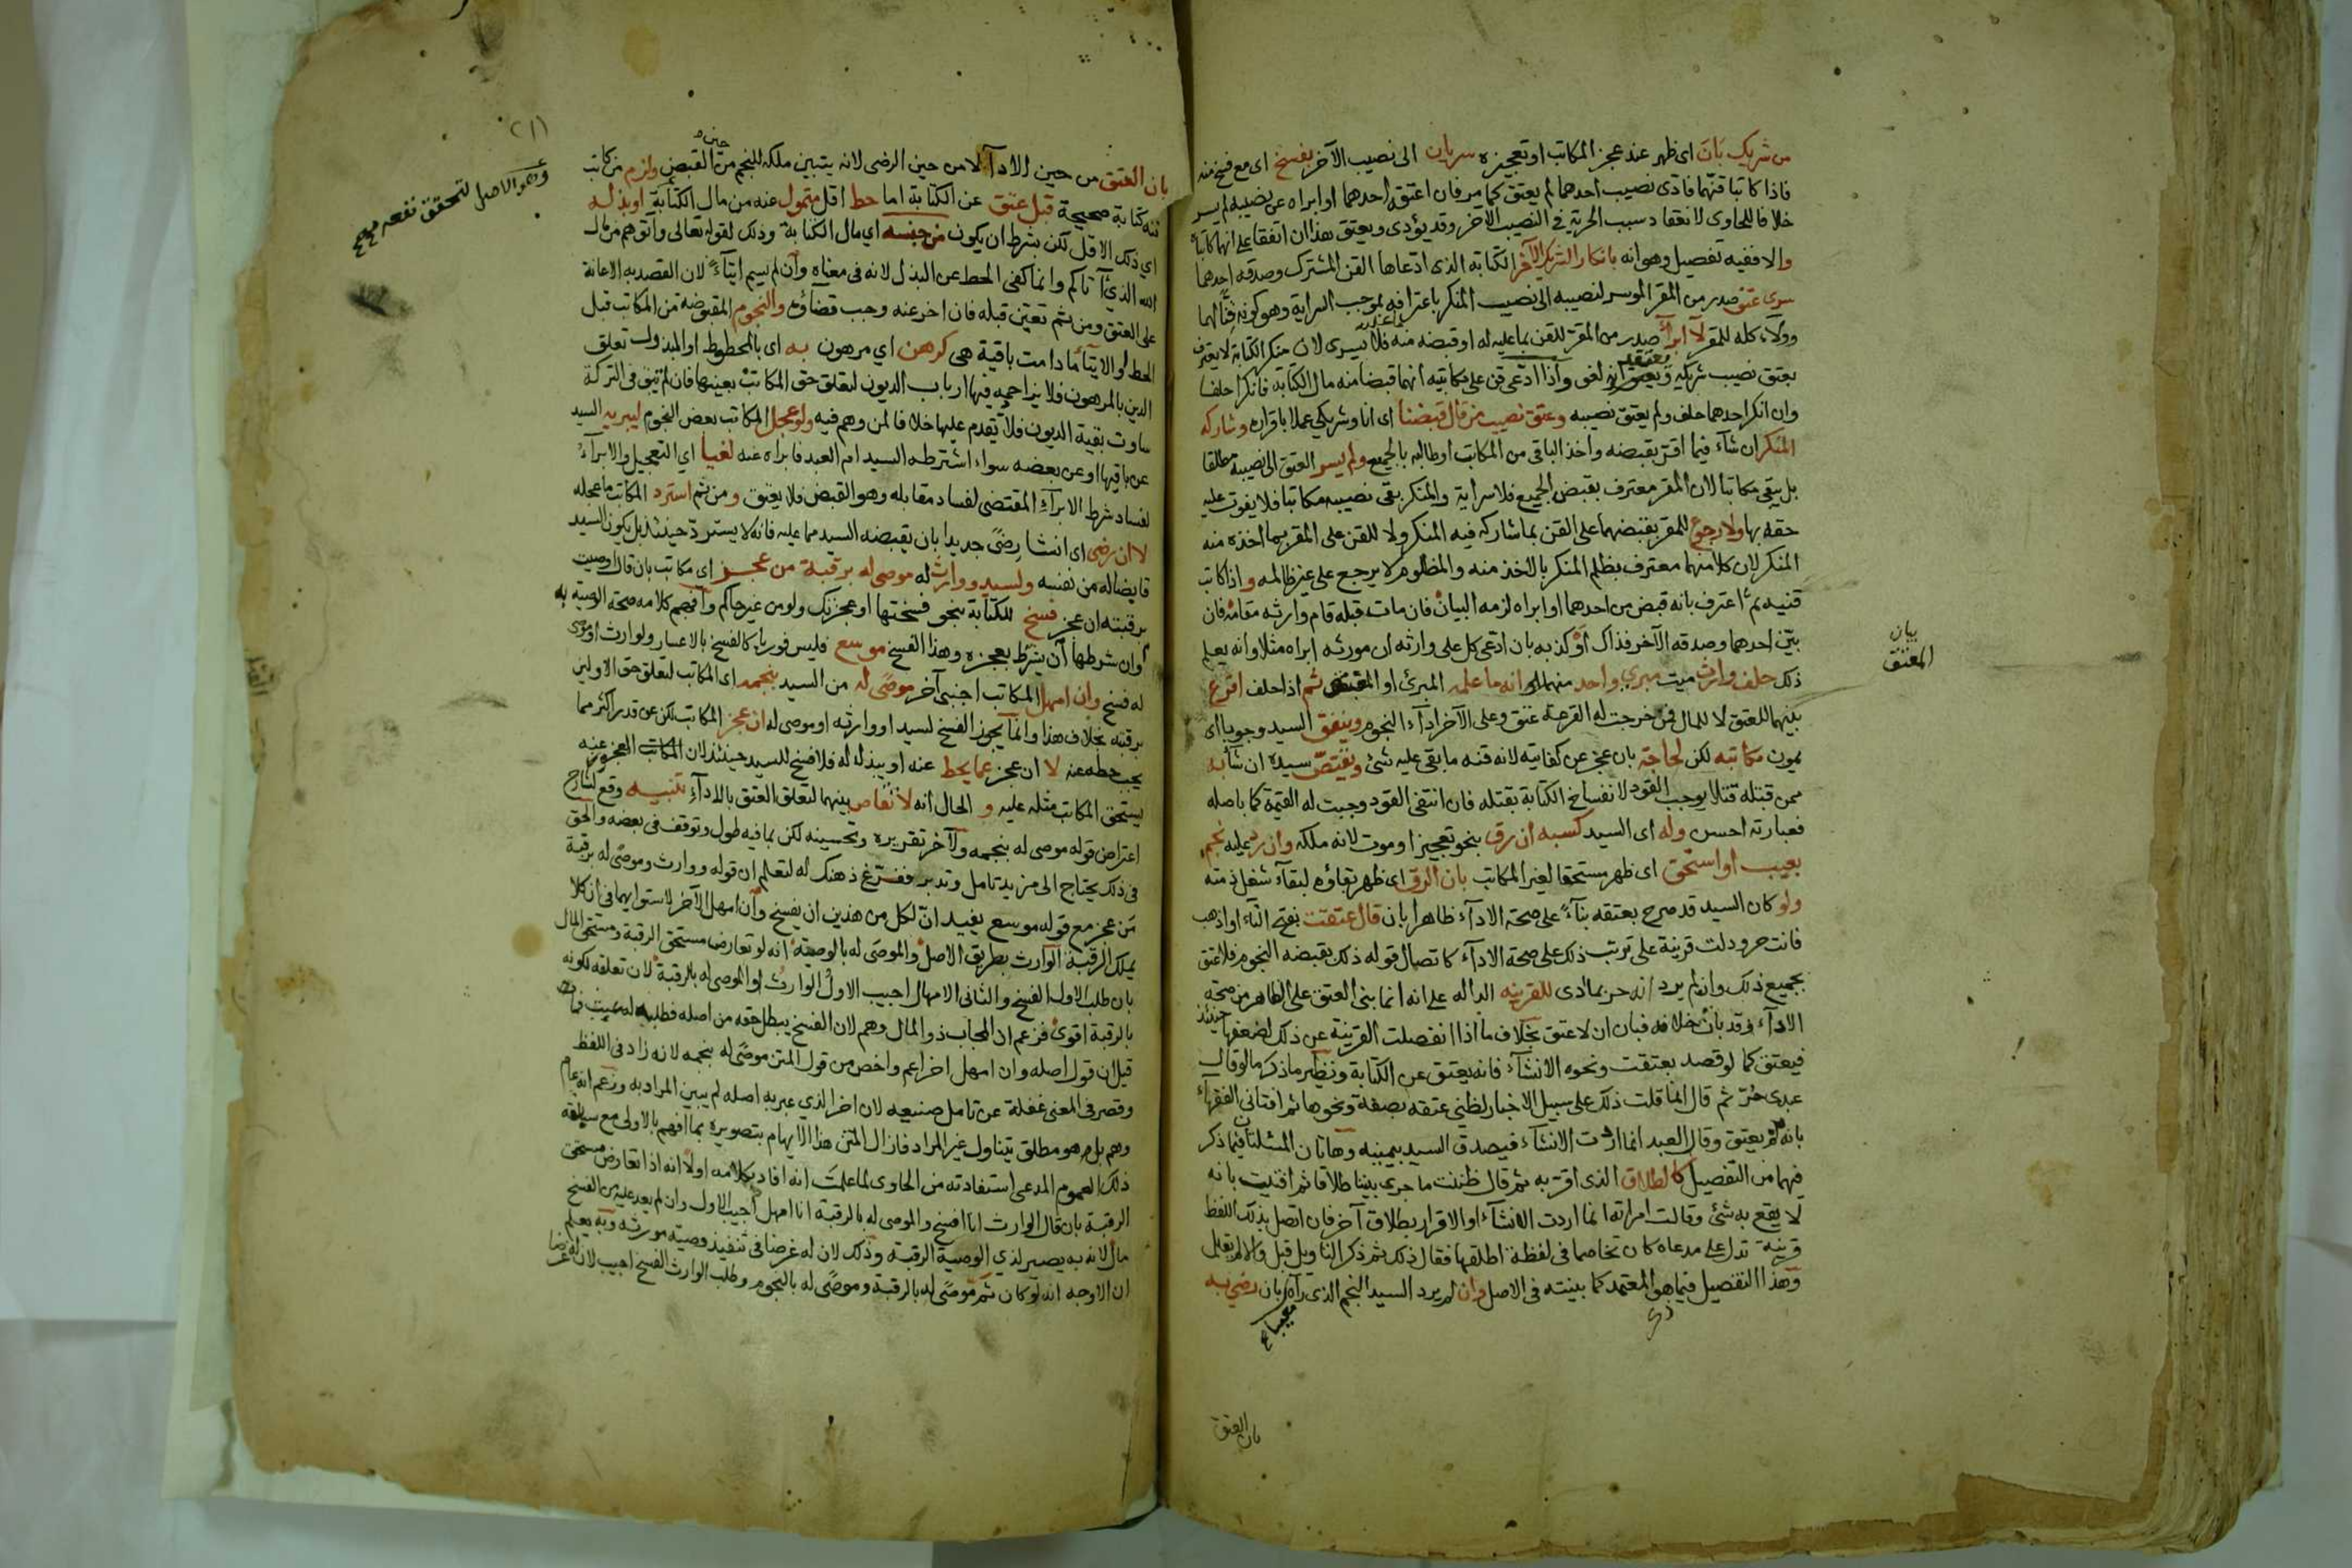 من شريك بَانَ اى ظهر عند عجز المكاتب او تعجيزه سريان الى نصيب الآخر بفسخ اى مع فسخ منه
فاذا كاتبا قنّهما فادّى نصيب احدهما لم يعتق كما مر فان اعتقه احدهما او ابراه عن نصيبه لم يسر
خلافا للحاوى لانعقاد سبب الحرية فى النصيب الآخر وقد يؤدى ويعتق هذا ان اتفقا على انهما كاتباه
والا ففيه تفصيل وهو انه بانكار الشريك الآخر الكتابة الذى ادّعاها القن المشترك وصدقه احدهما
سرى عتق صدر من المقر الموسر لنصيبه الى نصيب المنكر باعترافه بموجب السراية وهو كونه قنًّا لهما
وولاؤه كله للمقر لا ابرأ صدر من المقر للقن بما عليه له او قبضه منه فلا يسرى لان منكر الكتابة لا يعترف
بعتق نصيب شريكه ويعتقد انه لغو واذا ادّعى قن على مكاتبيه انهما قبضا منه مال الكتابة فانكرا حلفا
وان انكر احدهما حلف ولم يعتق نصيبه وعتق نصيب من قال قبضنا اى انا وشريكى عملا باقراره وشاركه
المنكر ان شاء فيما اقرّ بقبضه واخذ الباقى من المكاتب او طالبه بالجميع ولم يسر العتق الى نصيبه مطلقا
بل يبقى مكاتبا لان المقر معترف بقبض الجميع فلا سراية والمنكر بقى نصيبه مكاتبا فلا يفوت عليه
حقه بها ولا رجوع للمقر بقبضهما على القن بما شاركه فيه المنكر ولا للقن على المقر بما اخذه منه
المنكر لان كلا منهما معترف بظلم المنكر بالاخذ منه والمظلوم لا يرجع على غير ظالمه واذا كاتب
قنيه ثم اعترف بانه قبض من احدهما او ابراه لزمه البيان فان مات قبله قام وارثه مقامه فان
بيّن احدهما وصدقه الآخر فذاك أوْ كذبه بان ادّعى كل على وارثه ان مورثه ابراه مثلا وانه يعلم
ذلك حلف وارث ميت مبرى واحد منهما اى انه ما علم المبرئ او المقبض ثم اذا حلف اقرع
بينهما للعتق لا للمال فمن خرجت له القرعة عتق وعلى الآخر اداء النجوم وينفق السيد وجوبا اى
يمون مكاتبه لكن لحاجة بان عجز عن كفايته لانه قنه ما بقى عليه شئ ويقتصّ سيده ان شاء له
ممن قتله قتلا يوجب القود لانفساخ الكتابة بقتله فان انتفى القود وجبت له القيمة كما باصله
فعبارته احسن وله اى السيد كسبه ان رق بنحو تعجيز او موت لانه ملكه وان رد عليه نجم
بعيب او استحق اى ظهر مستحقا لغير المكاتب بان الرق اى ظهر بقاؤه لبقاء شغل ذمته
ولو كان السيد قد صرح بعتقه بناءً على صحة الاداء ظاهرا بان قال عتقت بفتح التاء او اذهب
فانت حر ودلت قرينة على ترتب ذلك على صحة الاداء كاتصال قوله ذلك بقبضه النجوم فلا عتق
بجميع ذلك وان لم يرد انه حر بما ادى للقرينه الداله على انه انما بنى العتق على الظاهر من صحة
الاداء وقد بان خلافه فبان ان لا عتق بخلاف ما اذا انفصلت القرينة عن ذلك لضعفها حينئذ
فيعتق كما لو قصد بعتقت ونحوه الانشاء فانه يعتق عن الكتابة ونظير ما ذكر ما لو قال
عبدى حرّ ثم قال انما قلت ذلك على سبيل الاخبار لظنى عتقه بصفة ونحوها ثم افتانى الفقهاء
بانه لم يعتق وقال العبد انما اردت الانشاء فيصدق السيد بيمينه وهاتان المسئلتان فيما ذكر
فيهما من التفصيل كالطلاق الذى اقرّ به ثم قال ظننت ما جرى بيننا طلاقا ثم افتيت بانه
لا يقع به شئ وقالت امراته انما اردت الانشاء او الاقرار بطلاق آخر فان اتصل بذلك اللفظ
قرينة تدل على مدعاه كان تخاصما فى لفظة اطلقها فقال ذلك ثم ذكر التاويل قبل والا لم يقبل
وهذا التفصيل فيها هو المعتمد كما بينته فى الاصل وان لم يرد السيد النجم الذى رآه بان رضى به
معيبا
بيان
المعتق
بان العتق
بان العتق من حين الاداء لا من حين الرضى لانه يتبين ملكه للنجم من حين القبض ولزم من كاتب
قنه كتابة صحيحة قبل عتق عن الكتابة اما حط اقل متمول عنه من مال الكتابة او بذله
اى ذلك الاقل لكن بشرط ان يكون من جنسه اى مال الكتابة وذلك لقوله تعالى وآتوهم من مال
الله الذى آتاكم وانما كفى الحط عن البذل لانه فى معناه وان لم يسم ايتاءً لان القصد به الاعانة
على العتق ومن ثم تعيّن قبله فان اخر عنه وجب قضاؤه والنجوم المقبوضه من المكاتب قبل
الحط او الايتاء ما دامت باقية هى كرهن اى مرهون به اى بالمحطوط او المبذول تعلق
الدين بالمرهون فلا يزاحمه فيها ارباب الديون لتعلق حق المكاتب بعينها فان لم تبق فى التركة
ساوت بقية الديون فلا تقدم عليها خلافا لمن وهم فيه ولو عجل المكاتب بعض النجوم ليبريه السيد
عن باقيها او عن بعضه سواء اشترطه السيد ام العبد فابراه عنه لغيا اى التعجيل والابراء
لفساد شرط الابراء المقتضى لفساد مقابله وهو القبض فلا يعتق ومن ثم استرد المكاتب ما عجله
لا ان رضى اى انشا رضًى جديدا بان يقبضه السيد مما عليه فانه لا يستردّ حينئذ بل يكون السيد
قابضا له من نفسه ولسيد ووارث له موصى له برقبة من عجز اى مكاتب بان قال اوصيت
برقبته ان عجز فسخ للكتابة بنحو فسختها او عجزتك ولو من غير حاكم وافهم كلامه صحة الوصية به
وان شرطها ان يشرط بعجزه وهذا الفسخ موسع فليس فوريا كالفسخ بالاعسار ولوارث او موصى
له فسخ وان امهل المكاتب اجنبى آخر موصًى له من السيد بنجمه اى المكاتب لتعلق حق الاولين
برقبته بخلاف هذا وانما يجوز الفسخ لسيد او وارثه او موصى له ان عجز المكاتب لكن عن قدر اكثر مما
يجب حطه عنه لا ان عجز عما يحط عنه او يبذله له فلا فسخ للسيد حينئذ لان المكاتب العجوز عنه
يستحق المكاتب مثله عليه و الحال انه لا تقاص بينهما لتعلق العتق بالاداء تنبيه وقع لشارح
اعتراض قوله موصى له بنجمه ولآخر تقريره وتحسينه لكن بما فيه طول وتوقف فى بعضه والحق
فى ذلك يحتاج الى مزيد تامل وتدبر ففرّغ ذهنك له لتعلم ان قوله ووارث وموصًى له برقبة
من عجز مع قوله موسع يفيد انّ لكل من هذين ان يفسخ وان امهل الآخر لاستوايهما فى ان كلا
يملك الرقبة الوارث بطريق الاصل والموصى له بالوصية انه لو تعارض مستحق الرقبة ومستحق المال
بان طلب الاول الفسخ والثانى الامهال اجيب الاول الوارث او الموصى له بالرقبة لان تعلقه لكونه
بالرقبة اقوى فزعم ان المجاب ذو المال وهم لان الفسخ يبطل حقه من اصله فطلبه له عبث
قيل ان قول اصله وان امهل اخر اعم واخص من قول المتن موصًى له بنجمه لانه زاد فى اللفظ
وقصر فى المعنى غفلة عن تامل صنيعه لان اخر الذى عبر به اصله لم يبين المراد به وزعم انه عام
وهم بل هو مطلق يتناول غير المراد فازال المتن هذا الايهام بتصويره بما افهم بالاولى مع سياقه
ذلك العموم المدعى استفادته من الحاوى لما علمت انه افاد بكلامه اولا انه اذا تعارض مستحق
الرقبة بان قال الوارث انا افسخ والموصى له بالرقبة انا امهل اجيب الاول وان لم يعد عليه من الفسخ
مال لانه به يصير لذى الوصية الرقبة وذلك لان له غرضا فى تنفيذ وصية مورثه وبه يعلم
ان الاوجه انه لو كان ثم موصًى له بالرقبة وموصًى له بالنجوم وطلب الوارث الفسخ اجيب لان له غرضا